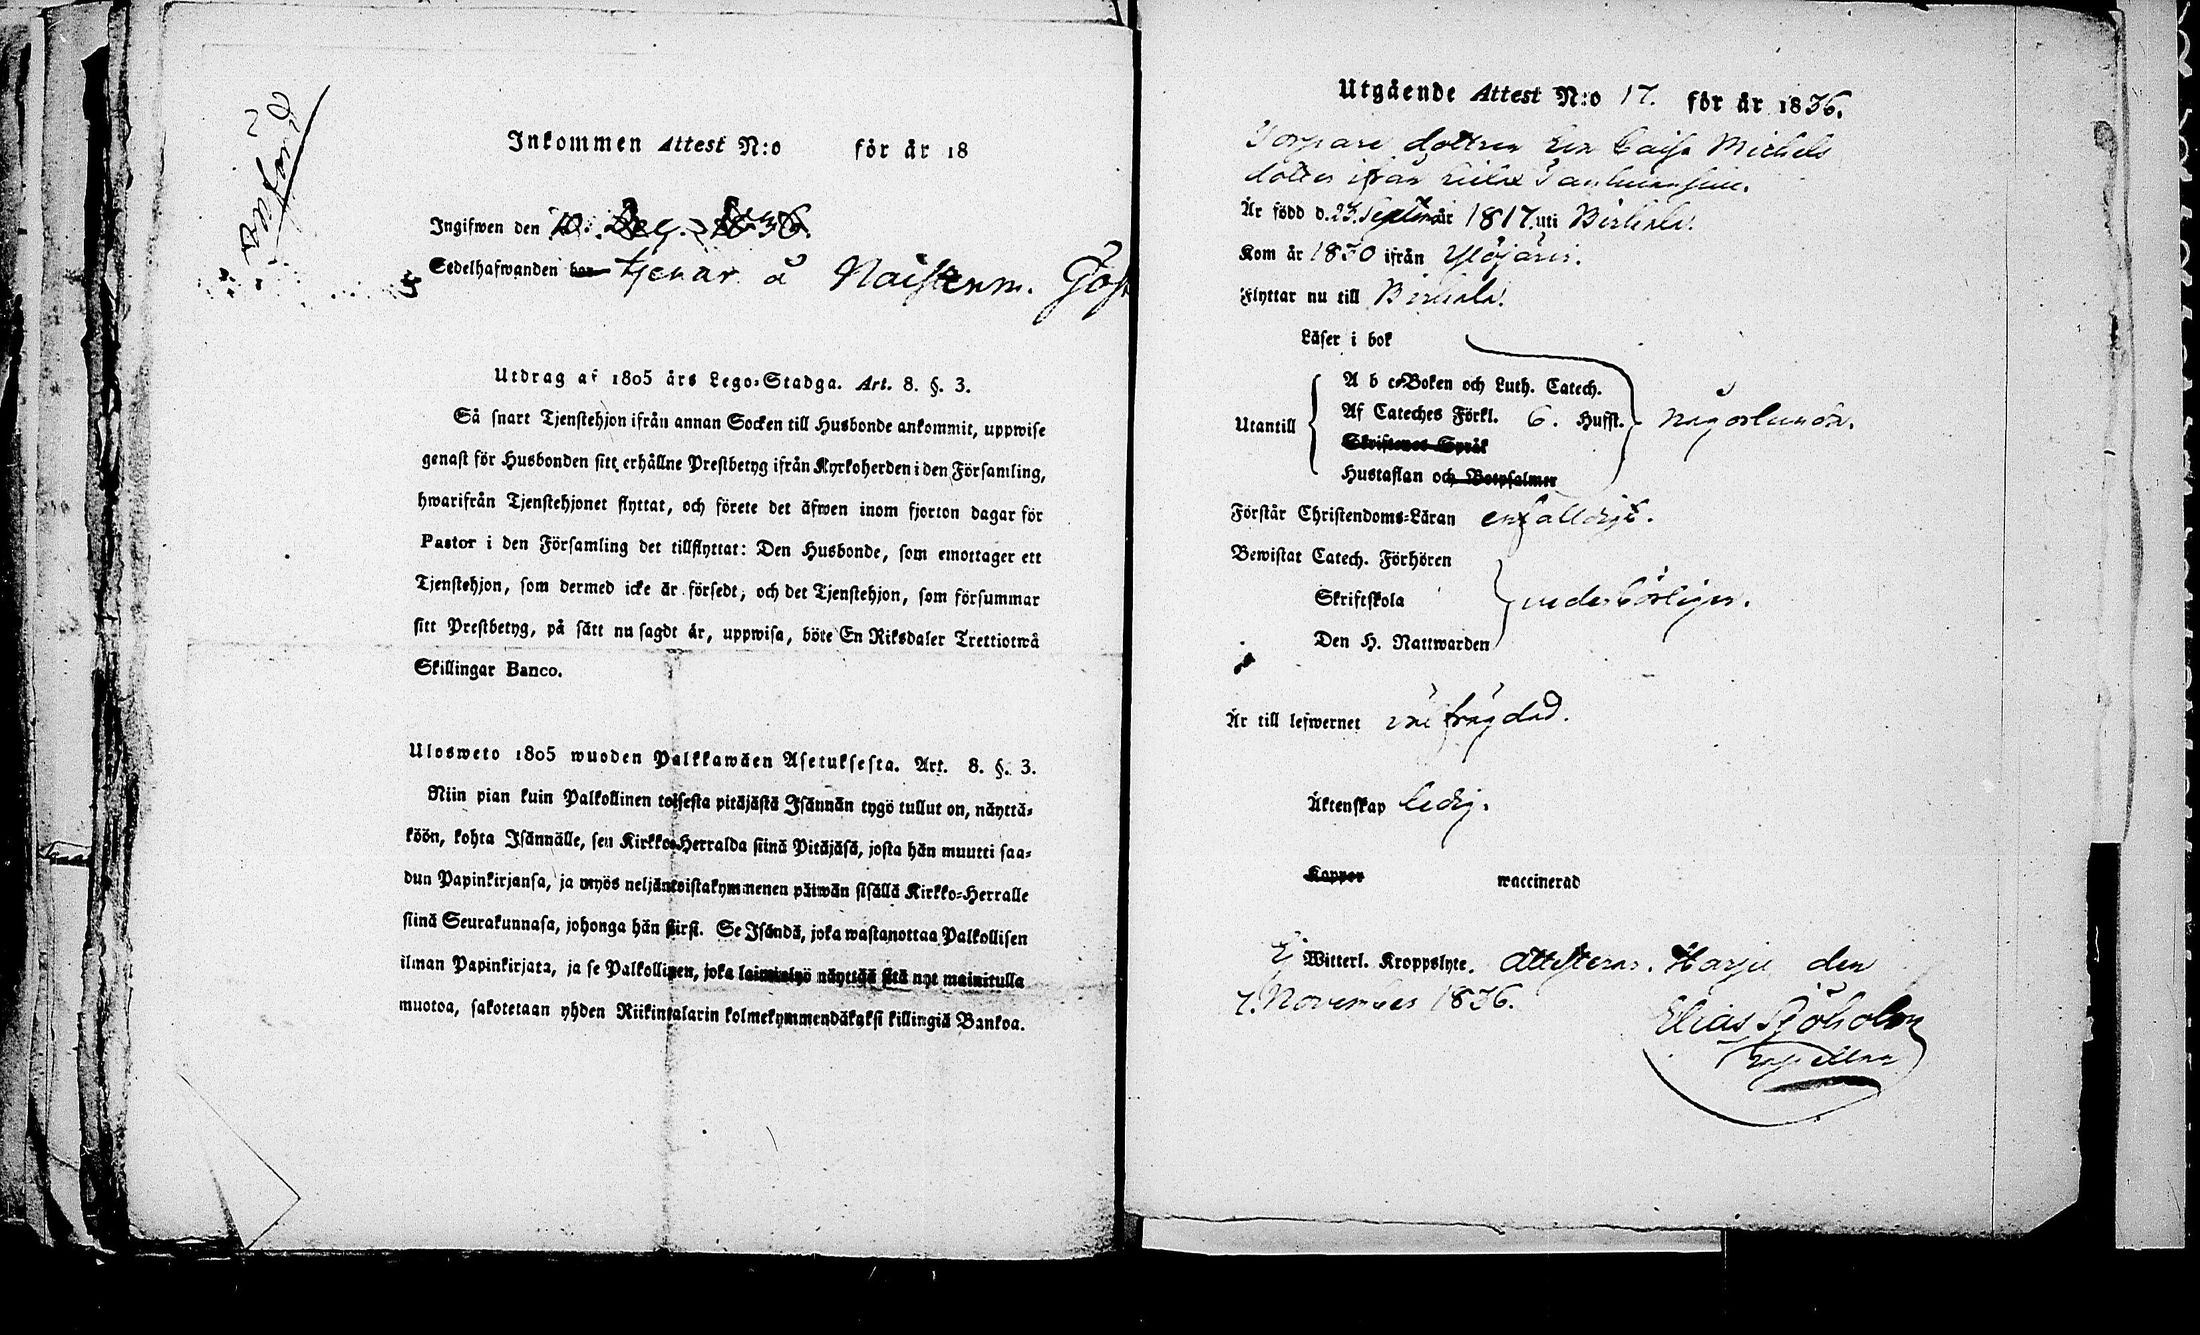 Inkommen Attest N:o för år 18
Ingifwen den 10. Dec. 1836.
Sedelhafwanden har tjenar å Naistenm.
Utdrag af 1805 års Lego-Stadga. Art. 8. §. 3.
Så snart Tjenstehjon ifrån annan Socken till Husbonde ankommit, uppwise
genast för Husbonden sitt erhållne Prestbetyg ifrån Kyrkoherden i den Församling,
hwarifrån Tjenstehjonet flyttat, och förete det äfwen inom fjorton dagar för
Pastor i den Församling det tillflyttat: Den Husbonde, som emottager ett
Tjenstehjon, som dermed icke är försedt, och det Tjenstehjon, som försummar
sitt Prestbetyg, på sätt nu sagdt är, uppwisa, böte En Riksdaler Trettiotwå
Skillingar Banco.
Ulosweto 1805 wuoden Palkkawäen Asetuksesta. Art. 8. §. 3.
Niin pian kuin Palkollinen toisesta pitäjästä Isännän tygö tullut on, näyttä-
köön, kohta Isännälle, sen Kirkko-Herralda siinä Pitäjäsä, josta hän muutti saa-
dun Papinkirjansa, ja myös neljäntoistakymmenen päiwän sisällä Kirkko-Herralle
siinä Seurakunnasa, johonga hän siirsi. Se Isändä, joka wastanottaa Palkollisen
ilman Papinkirjata, ja se Palkollinen, joka laiminlyö näyttää sitä nyt mainitulla
muotoa, sakotetaan yhden Riikintalarin kolmekymmendäkaksi killingiä Bankoa.
Utgående Attest N:o 17. för år 1836.
Torpare dottren Caisa Michels
dotter ifrån
Är född d. 23. Septem. år 1817. uti Birkala.
Kom år 1830 ifrån Ylöjärvi.
Flyttar nu till Birkala.
Läser i bok
A b c-Boken och Luth. Catech.
Utantill Af Cateches Förkl. 6. Hufst. någorlunda.
Skriftenes Språk
Hustaflan och Botpsalmer
Förstår Christendoms-Läran enfalldigt.
Bewistat Catech. Förhören
Skriftskola wederbörligen.
Den H. Nattwarden
Är till lefwernet väl frägdad.
Äktenskap ledig.
Koppor waccinerad
Ej Witterl. Kroppslyte. attesteras. Harju den
7. November 1836.
Elias Sjöholm
Capellan